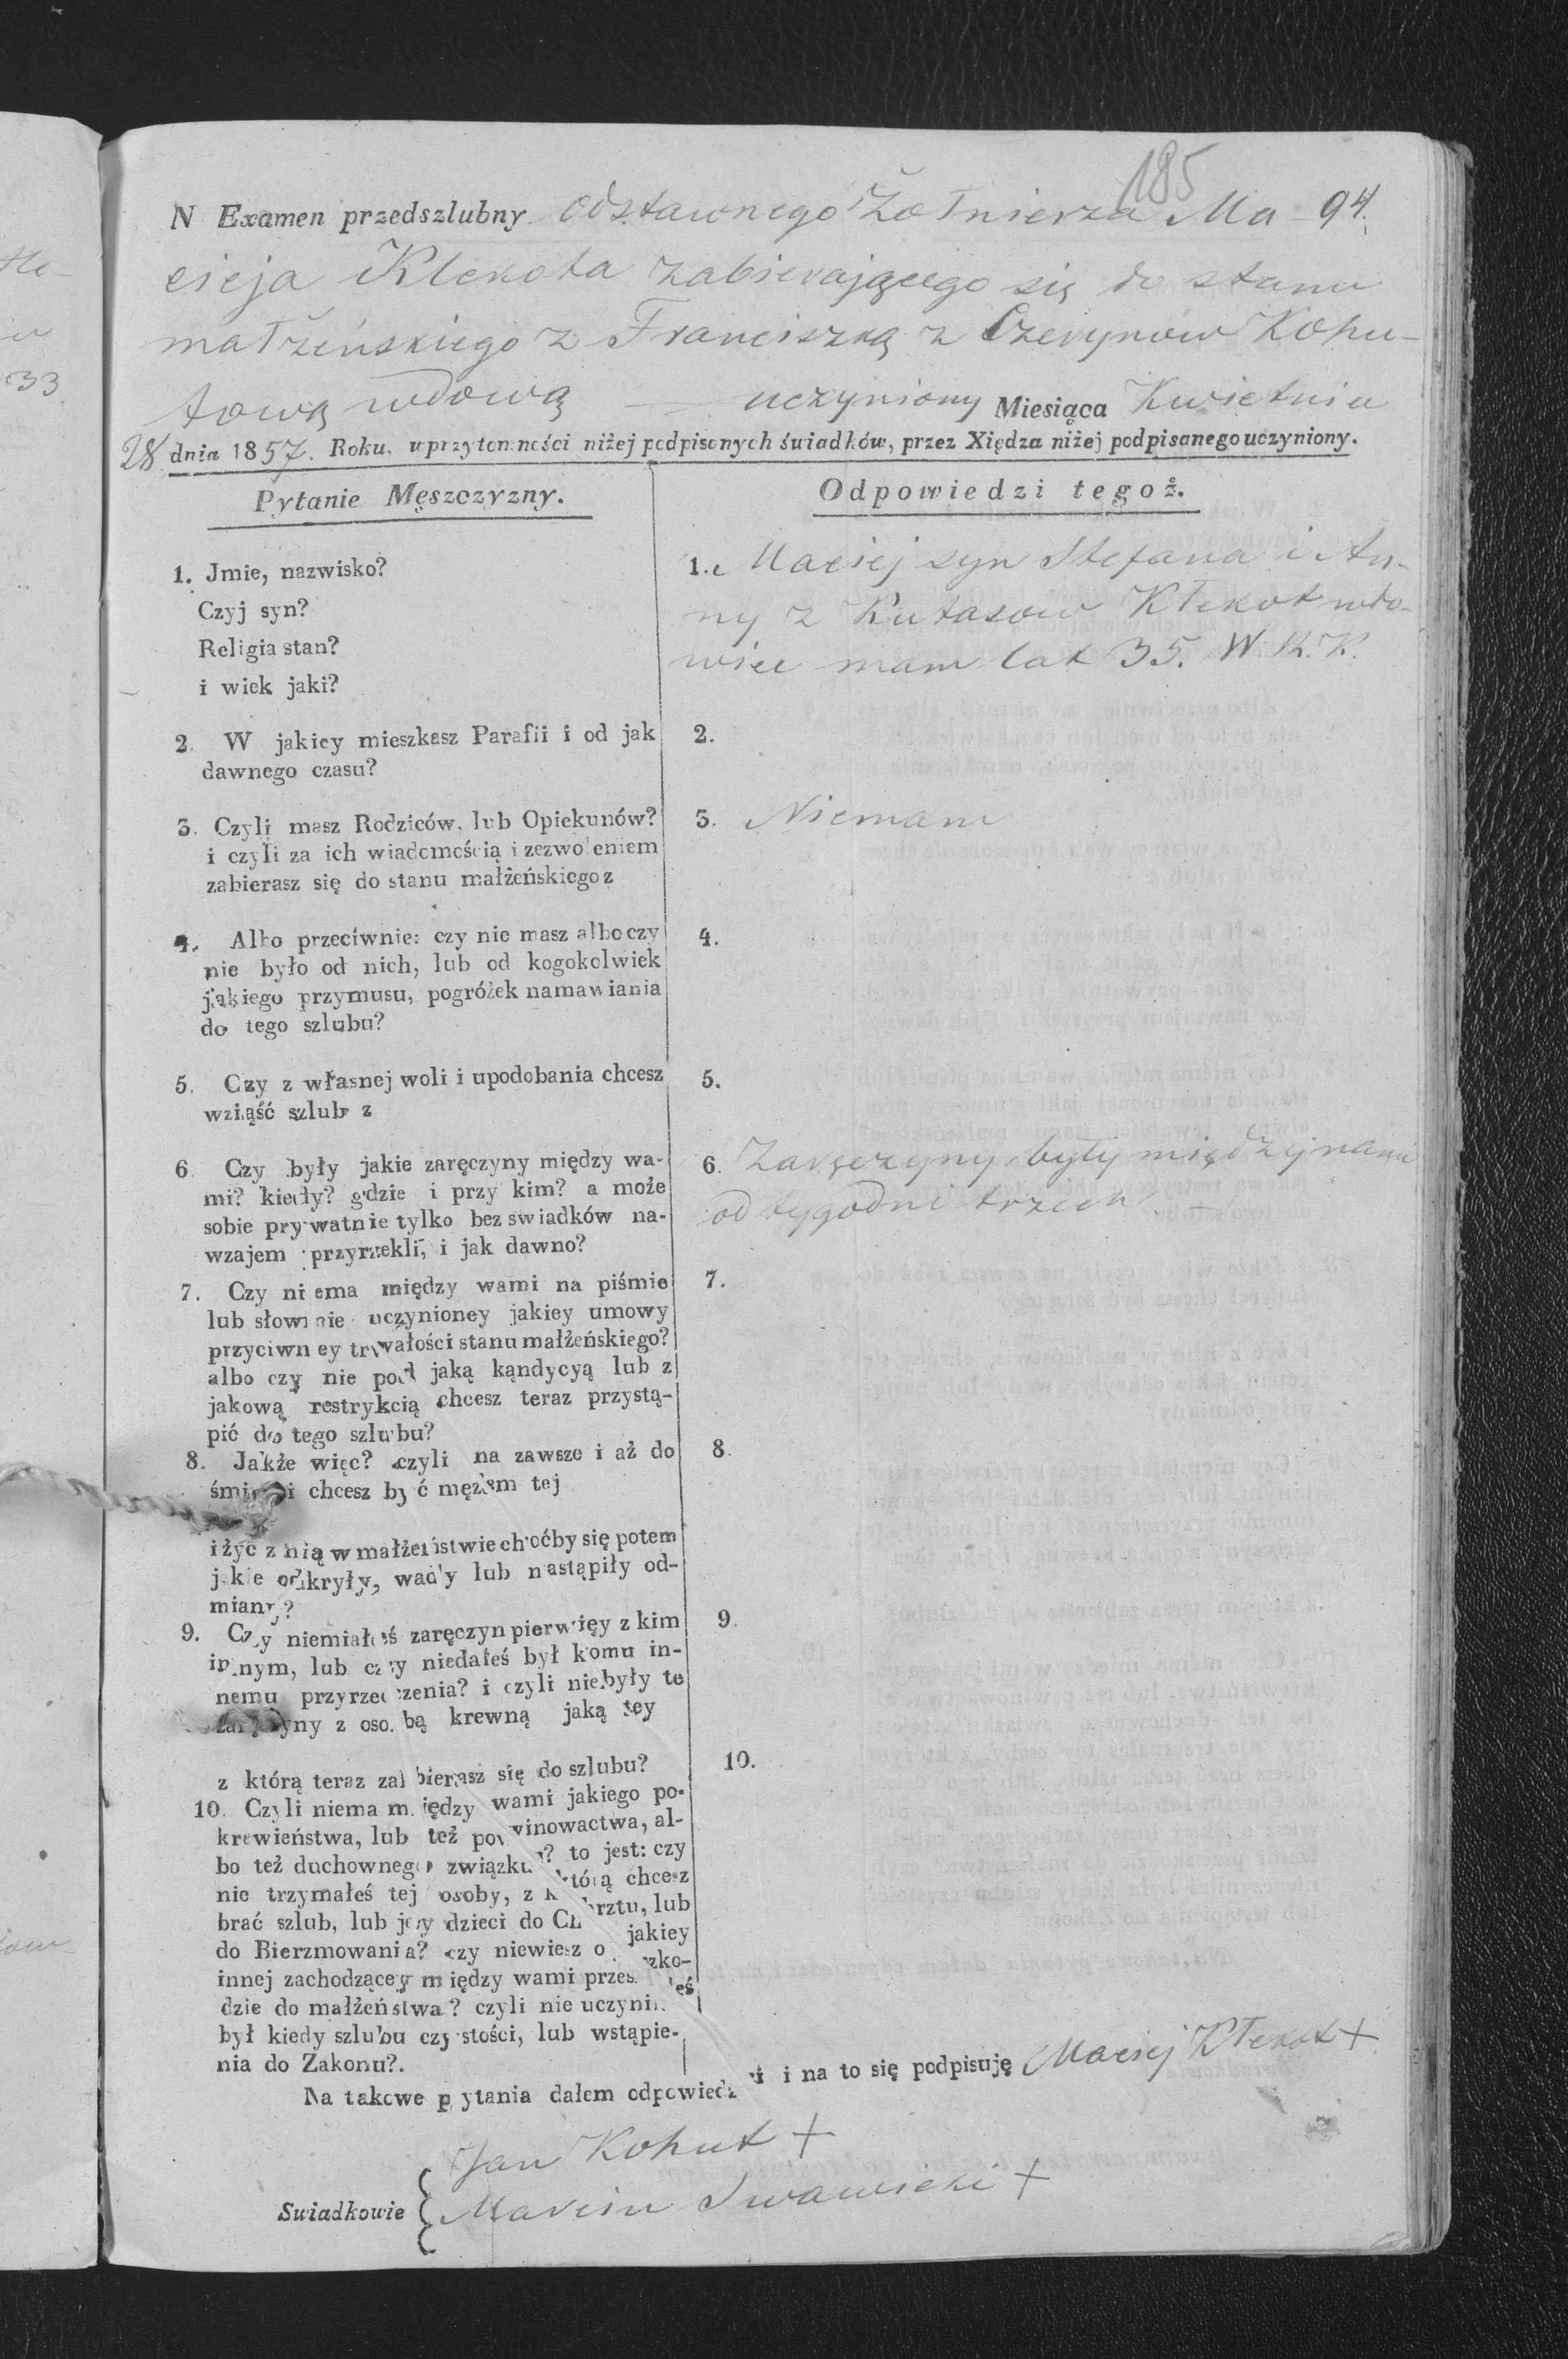 185
N Examen przedszlubny Odstawnego Żołnierza Ma- 94.
cieja Klekota zabierającego się do stanu
małżeńskiego z Franciszką z Czerynow Kohu-
tową wdową — uczyniony Miesiąca Kwietnia
28 dnia 1857. Roku, w przytomności niżej podpisanych świadków, przez Xiędza niżej podpisanego uczyniony.
Pytanie Męszczyzny.
Odpowiedzi tegoż.
1. Jmie, nazwisko?
Czyj syn?
Religia stan?
i wiek jaki?
1. Maciej syn Stefana i An-
ny z Kutasow Kłekot wdo-
wiec mam lat 35. W. R. K.
2. W jakiey mieszkasz Parafii i od jak
dawnego czasu?
2.
3. Czyli masz Rodziców, lub Opiekunów?
i czyli za ich wiadomością i zezwoleniem
zabierasz się do stanu małżeńskiego z
3. Niemam
4. Albo przeciwnie: czy nie masz albo czy
nie było od nich, lub od kogokolwiek
jakiego przymusu, pogróżek namawiania
do tego szlubu?
4.
5. Czy z własnej woli i upodobania chcesz
wziąść szlub z
5.
6. Czy były jakie zaręczyny między wa-
mi? kiedy? gdzie i przy kim? a może
sobie prywatnie tylko bez swiadków na-
wzajem przyrzekli, i jak dawno?
6. Zaręczyny były między nami
od tygodni trzech.
7. Czy niema między wami na piśmie
lub słownie uczynioney jakiey umowy
przyciwney trwałości stanu małżeńskiego?
albo czy nie pod jaką kąndycyą lub z
jakową restrykcią chcesz teraz przystą-
pić do tego szlubu?
7.
8. Jakże więc? czyli na zawsze i aż do
śmierci chcesz być mężem tej
i żyć z nią w małżeństwie choćby się potem
jakie odkryły, wady lub nastąpiły od-
miany?
8.
9. Czy niemiałeś zaręczyn pierwięy z kim
innym, lub czy niedałeś był komu in-
nemu przyrzeczenia? i czyli niebyły te
zaręczyny z osobą krewną jaką tey
z którą teraz zabierasz się do szlubu?
9.
10. Czyli niema między wami jakiego po-
krewieństwa, lub też powinowactwa, al-
bo też duchownego związku? to jest: czy
nie trzymałeś tej osoby, z którą chcesz
brać szlub, lub jey dzieci do Chrztu, lub
do Bierzmowania? czy niewiesz o jakiey
innej zachodzącey między wami przeszko-
dzie do małżeństwa? czyli nie uczyniłeś
był kiedy szlubu czystości, lub wstąpie-
nia do Zakonu?.
10.
Na takowe pytania dałem odpowiedzi i na to się podpisuję Maciej Kłekot +
Jan Kohut +
Swiadkowie Marcin Iwawicki +